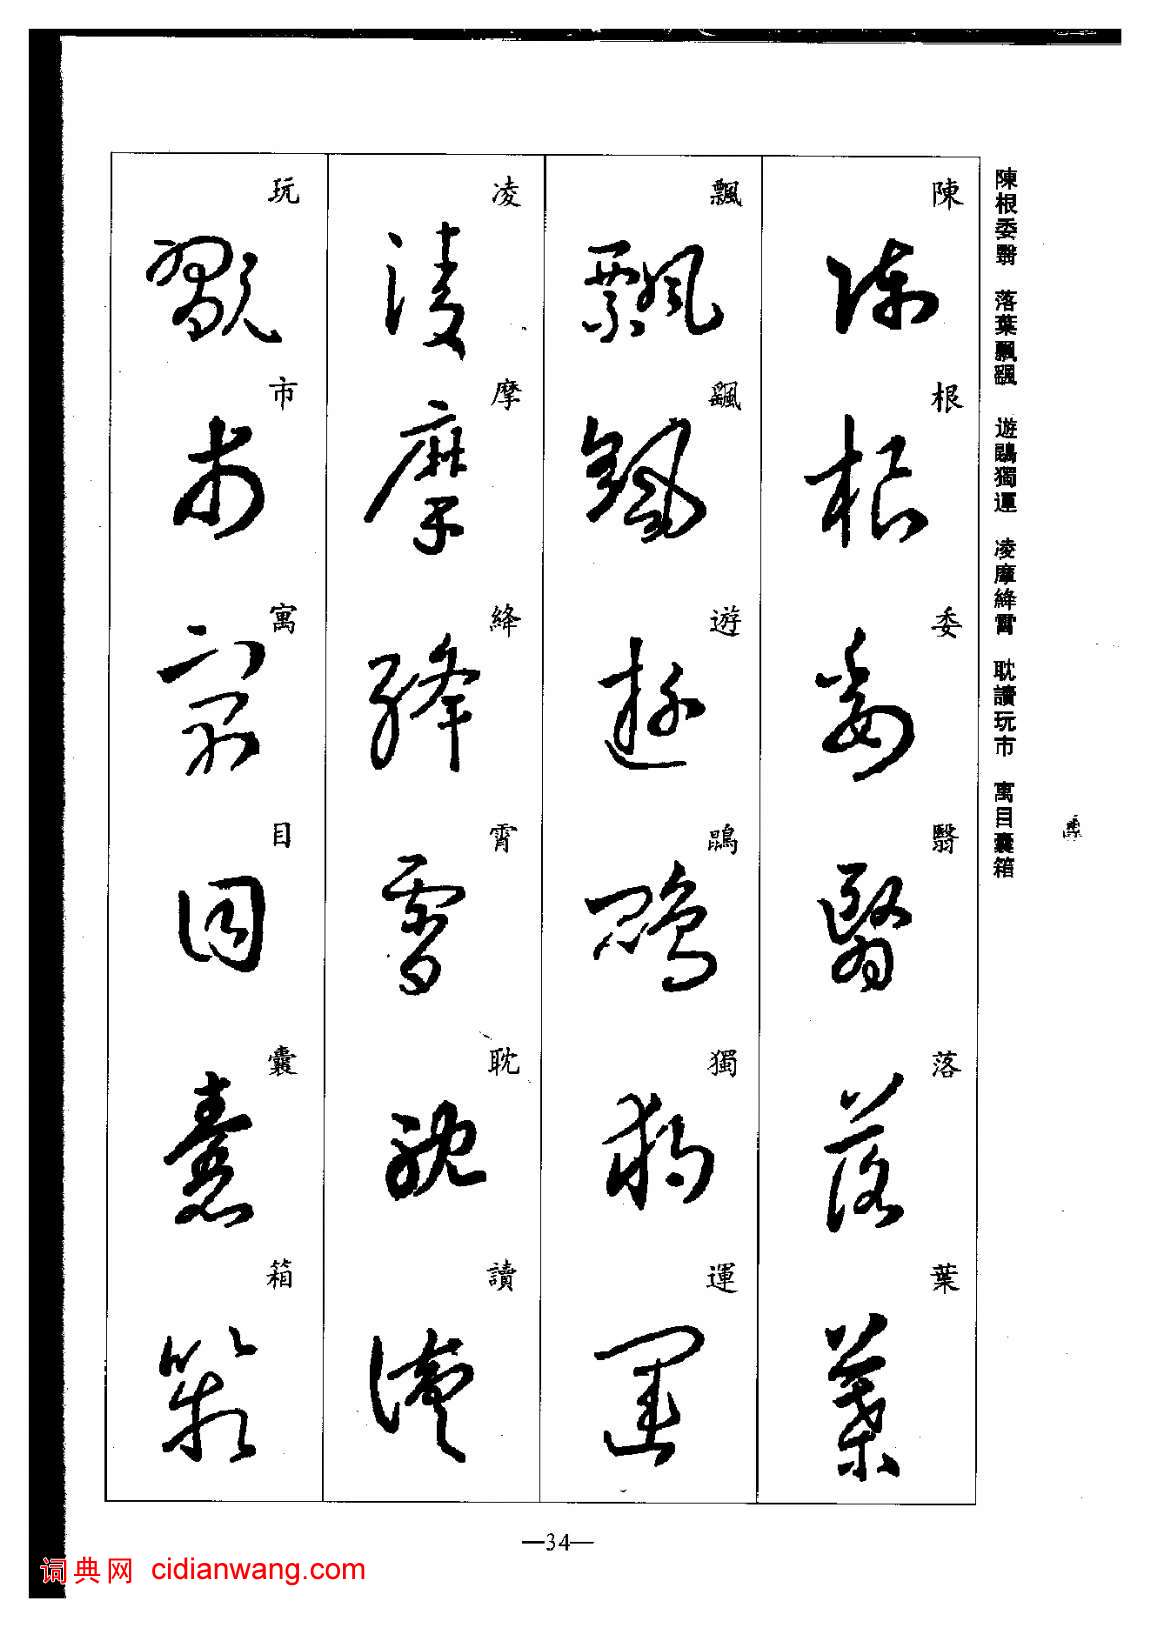 陳根委翳 落葉飄颻 遊鵾獨運 凌摩絳霄 耽讀玩市 寓目囊箱
陳根委翳落葉
飄颻遊鵾獨運
凌摩絳霄耽讀
玩市寓目囊箱
—34—
词典网 cidianwang.com